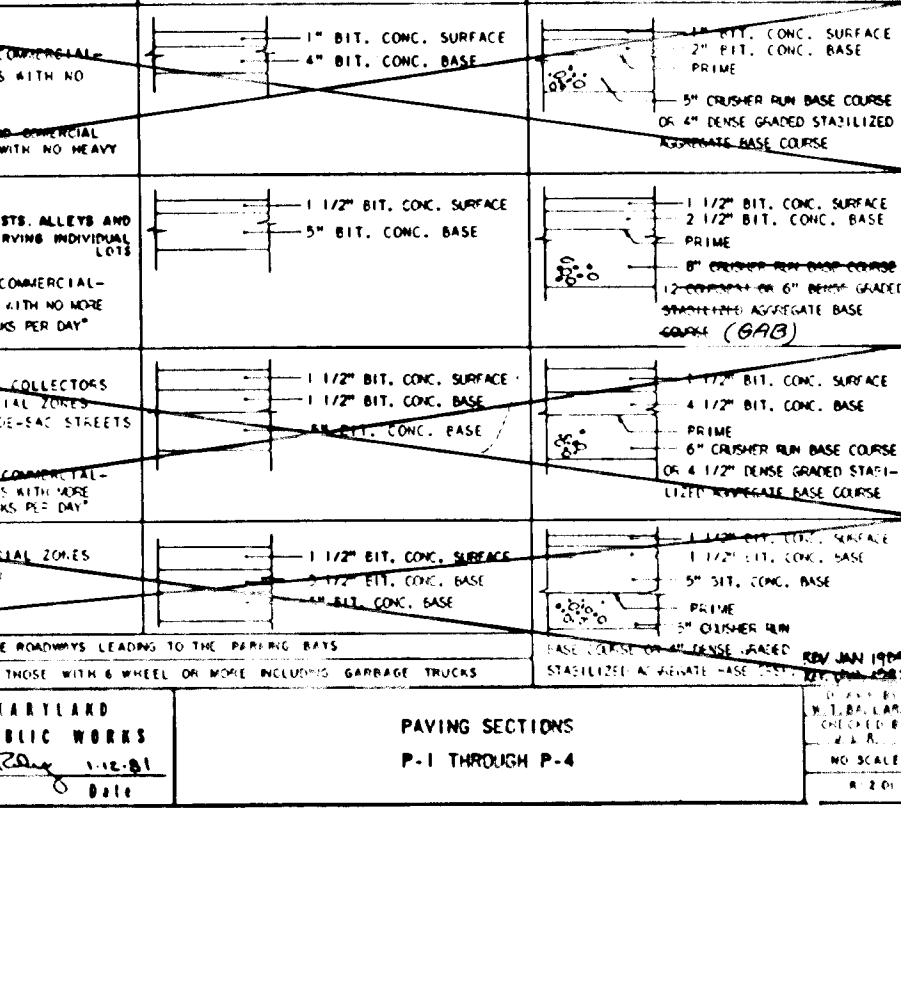 COMMERCIAL-
S WITH NO
COMERCIAL
WITH NO HEAVY
1" BIT. CONC. SURFACE
4" BIT. CONC. BASE
1" BIT. CONC. SURFACE
2" BIT. CONC. BASE
PRIME
5" CRUSHER RUN BASE COURSE
OR 4" DENSE GRADED STABILIZED
AGGREGATE BASE COURSE
STS. ALLEYS AND
RVING INDIVIDUAL
LOTS
COMMERCIAL-
WITH NO MORE
KS PER DAY*
1 1/2" BIT. CONC. SURFACE
5" BIT. CONC. BASE
1 1/2" BIT. CONC. SURFACE
2 1/2" BIT. CONC. BASE
PRIME
8" CRUSHER RUN BASE COURSE
OR 6" DENSE GRADED
STABILIZED AGGREGATE BASE
COURSE (GAB)
COLLECTORS
IAL ZONES
DE-SAC STREETS
COMMERCIAL-
S WITH MORE
KS PER DAY*
1 1/2" BIT. CONC. SURFACE
1 1/2" BIT. CONC. BASE
BIT. CONC. BASE
1 1/2" BIT. CONC. SURFACE
4 1/2" BIT. CONC. BASE
PRIME
6" CRUSHER RUN BASE COURSE
OR 4 1/2" DENSE GRADED STABI-
LIZED AGGREGATE BASE COURSE
IAL ZONES
1 1/2" BIT. CONC. SURFACE
1/2" BIT. CONC. BASE
BIT. CONC. BASE
1 1/2" BIT. CONC. SURFACE
1 1/2" BIT. CONC. BASE
5" BIT. CONC. BASE
PRIME
CRUSHER RUN
BASE COURSE OR 4" DENSE GRADED
STABILIZED AGGREGATE BASE
E ROADWAYS LEADING TO THE PARKING BAYS
THOSE WITH 6 WHEEL OR MORE INCLUDING GARBAGE TRUCKS
REV JAN
ARYLAND
BLIC WORKS
1-12-81
Date
PAVING SECTIONS
P-1 THROUGH P-4
CHECKED B
NO SCALE